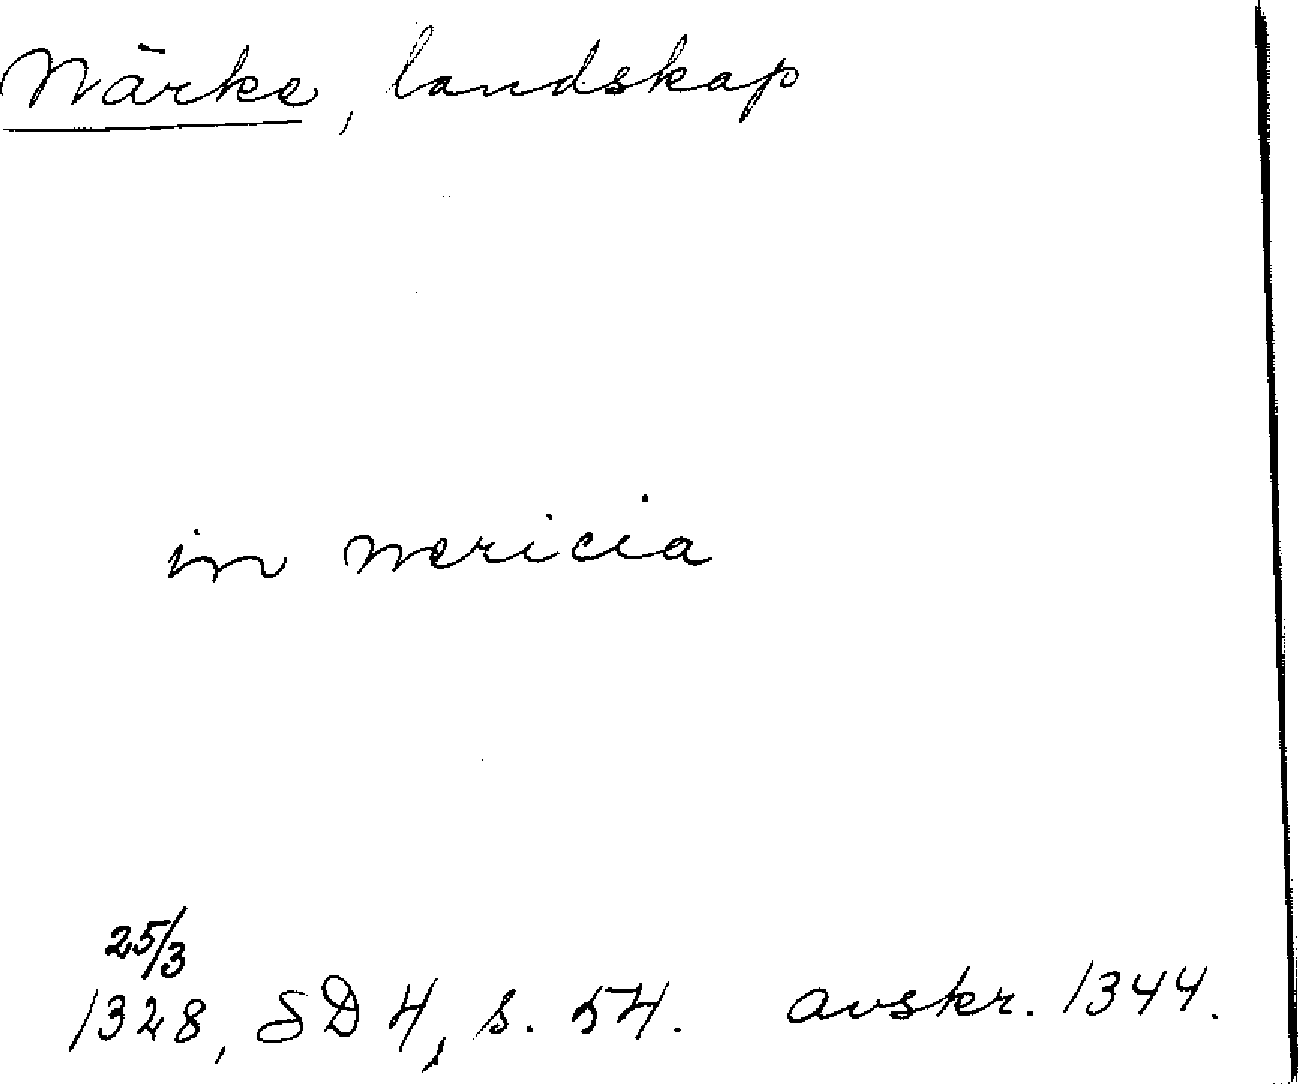 Närke, landskap
in nericia
25/3
1328, SD 4, s. 54. avskr. 1344.